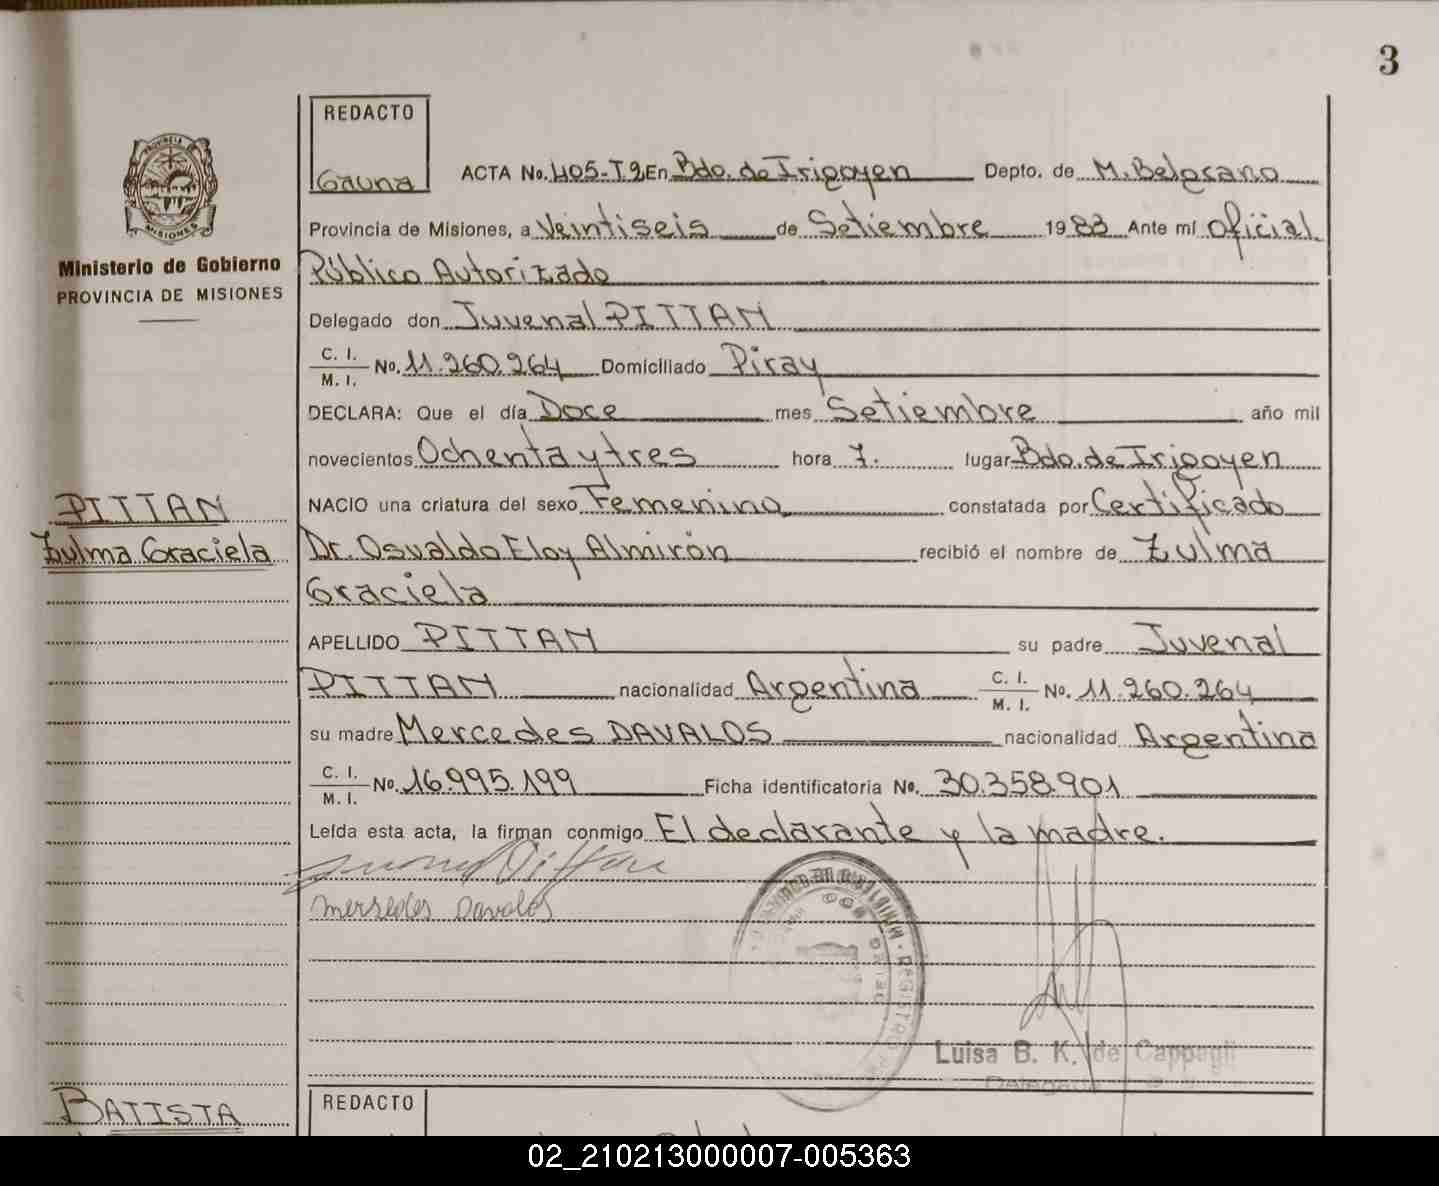 3
REDACTO
Gauna
ACTA No. 405-T2 En Bdo. de Irigoyen Depto. de M. Belgrano
PROVINCIA DE
MISIONES
Ministerio de Gobierno
PROVINCIA DE MISIONES
Provincia de Misiones, a Veintiseis de Setiembre 1983 Ante mí Oficial
Público Autorizado
Delegado don Juvenal PITTAN
C. I.
M. I. No. 11.260.264 Domiciliado Piray
DECLARA: Que el día Doce mes Setiembre año mil
novecientos Ochenta y tres hora 7. lugar Bdo. de Irigoyen
PITTAN
Zulma Graciela
NACIO una criatura del sexo Femenino constatada por Certificado
Dr. Osvaldo Eloy Almirón recibió el nombre de Zulma
Graciela
APELLIDO PITTAN su padre Juvenal
PITTAN nacionalidad Argentina C. I.
M. I. No. 11.260.264
su madre Mercedes DAVALOS nacionalidad Argentina
C. I.
M. I. No. 16.995.199 Ficha identificatoria No. 30.358.901
Leída esta acta, la firman conmigo El declarante y la madre.
mersedes Davalos
REGISTRO
Luisa B. K. de Cappagli
Delegada
BATISTA
REDACTO
02_210213000007-005363